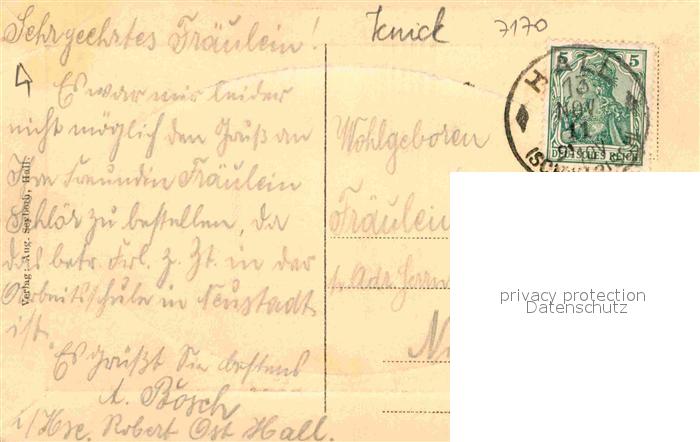 Sehrgeehrtes Fräulein!
Es war mir leider
nicht möglich den Gruß an
Ihre Freundin Fräulein
Schlör zu bestellen, da
das betr. Frl. z. Zt. in der
Arbeitsschule in Neustadt
ist.
Es grüßt Sie bestens
A. Bosch
b/Hrc. Robert Ost Hall.
Verlag: Aug. Seybold, Hall.
Knick 7170
5 5
DEUTSCHES REICH
HALL
13
NOV
11
Wohlgeboren
Fräulein
p. Adr. Herrn
privacy protection
Datenschutz